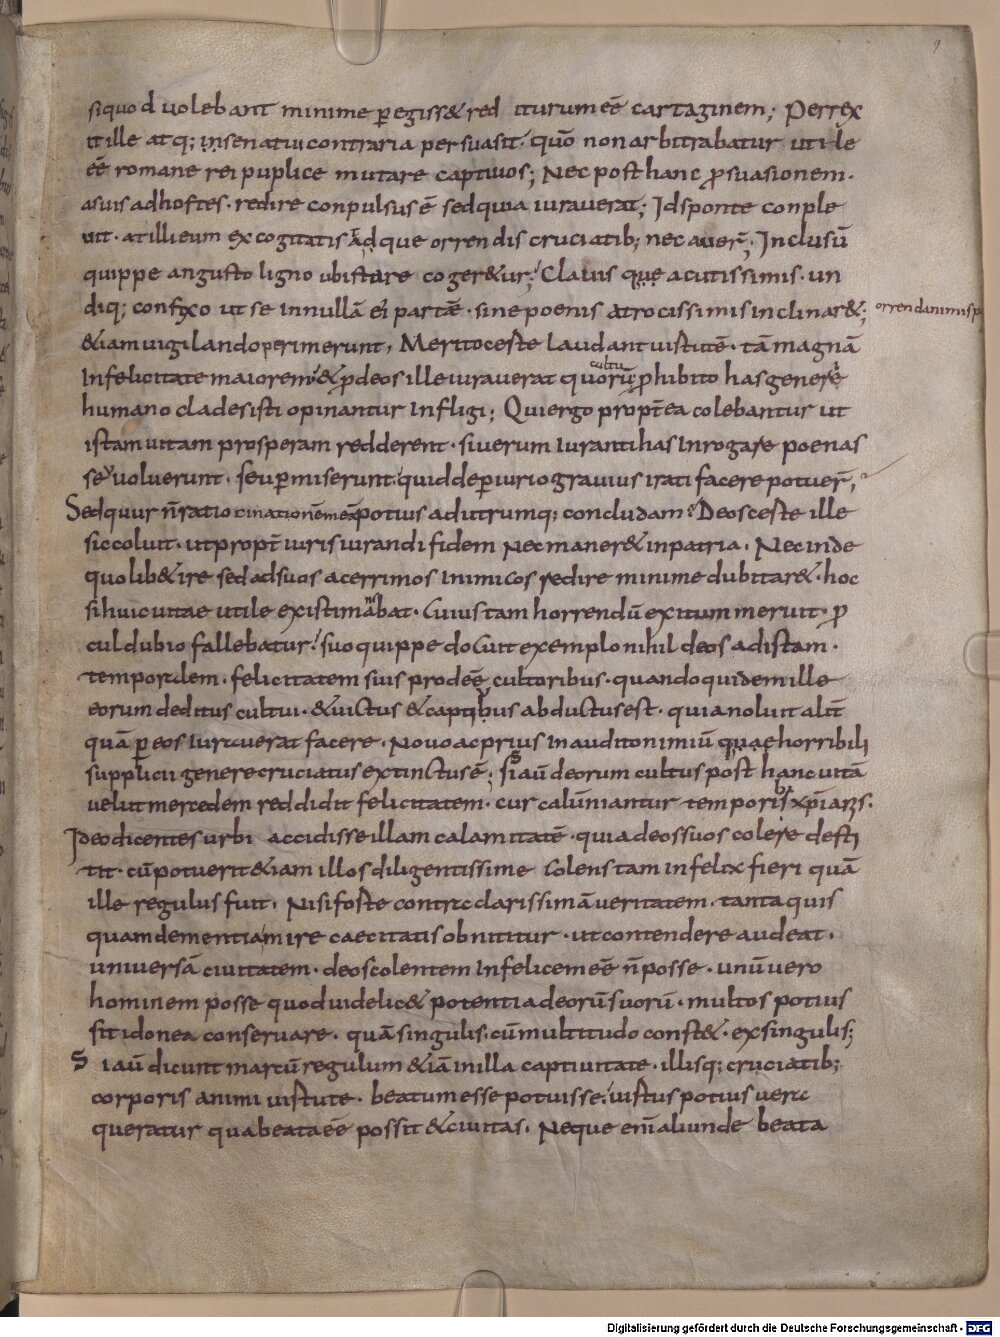 9
si quod volebant minime ꝑegiss& red iturum eē cartaginem; Perrex
it ille atq; in senatu contraria persuasit· quō non arbitrabatur utile
eē romane rei puplice mutare captivos; Nec post hanc ꝓsuasionem·
a suis ad hostes· redire conpulsus ē sed quia iuraverat; Id sponte conple
vit· at illi eum excogitatis ādque orrendis cruciatib; necaver̄; Inclusū
quippe angusto ligno ubi stare coger&ur; Clavis que acutissimis· un
diq; confixo ut se in nullā ei partē· sine poenis atrocissimis inclinar&; orrendanimisp
&iam vigilando perimerunt, Merito ceste laudant vistutē· tā magnā
Infelicitate maiorem· & ꝓ deos ille iuraverat quorū cultu ꝓhibito has genere
humano clades isti opinantur infligi; Qui ergo propt̄ea colebantur ut
istam vitam prosperam redderent· si verum iuranti has inrogare poenas
seu voluerunt· seu ꝑmiserunt quid de ꝑiurio gravius irati facere potuer̄,
Sed quur n̄ ratiocinationē meā potius ad utrumq; concludam? Deos ceste ille
sic coluit· ut propt̄ iuris iurandi fidem nec maner& in patria· Nec inde
quolib& ire sed ad suos acerrimos inimicos redire minime dubitar&· hoc
si huic vitae utile existimabat· Cuius tam horrendū exitum meruit· ꝓ
cul dubio fallebatur· suo quippe docuit exemplo nihil deos ad istam·
temporalem· felicitatem suis prodeē cultoribus· quandoquidem ille
eorum deditus cultui· & victus & captibus abductus est· quia noluit alit̄
quā ꝑ eos iuraverat facere· Novo ac prius inaudito nimiū quae horribili
supplicii genere cruciatus extinctus ē; Si aū deorum cultus post hanc vitā
velut mercedem reddidit felicitatem· cur calūniantur temporibꝰ xp̄ianis·
Ideo dicentes urbi accidisse illam calamitatē· quia deos suos colere desti
tit· cū potuerit &iam illos diligentissime colens tam infelix fieri quā
ille regulus fuit· Nisi foste contra clarissimā veritatem· tanta quis
quam dementia mire caecitatis obnititur· ut contendere audeat·
universā civitatem· deos colentem infelicem eē n̄ posse· unū vero
hominem posse quod videlic& potentia deorū suorū· multos potius
sit idonea conservare· quā singulis· cū multitudo const&· ex singulis;
Si aū dicunt marcū regulum &iā in illa captivitate· illisq; cruciatib;
corporis animi vistute· beatum esse potuisse· vistus potius vera
queratur qua beata eē possit & civitas· Neque eni̅ aliunde beata
Digitalisierung gefördert durch die Deutsche Forschungsgemeinschaft - DFG